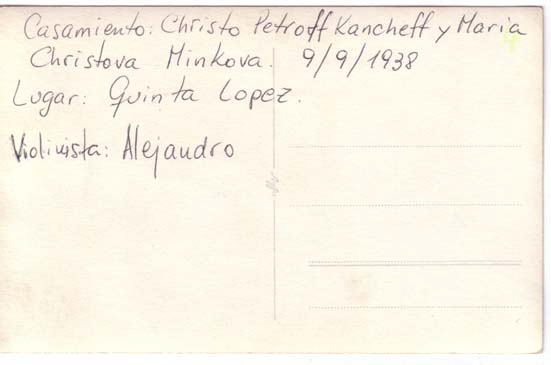 Casamiento: Christo Petroff Kancheff y Maria
Christova Minkova. 9/9/1938
Lugar: Quinta Lopez.
Violinista: Alejandro